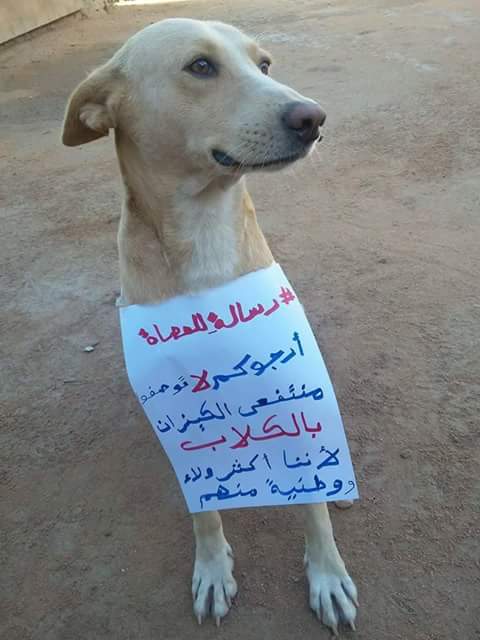 #رسالة للعصاة
أرجوكم لا توصفو
منتفعى الكيزان
بالكلاب
لأننا اكثر ولاء
ووطنيةً منهم